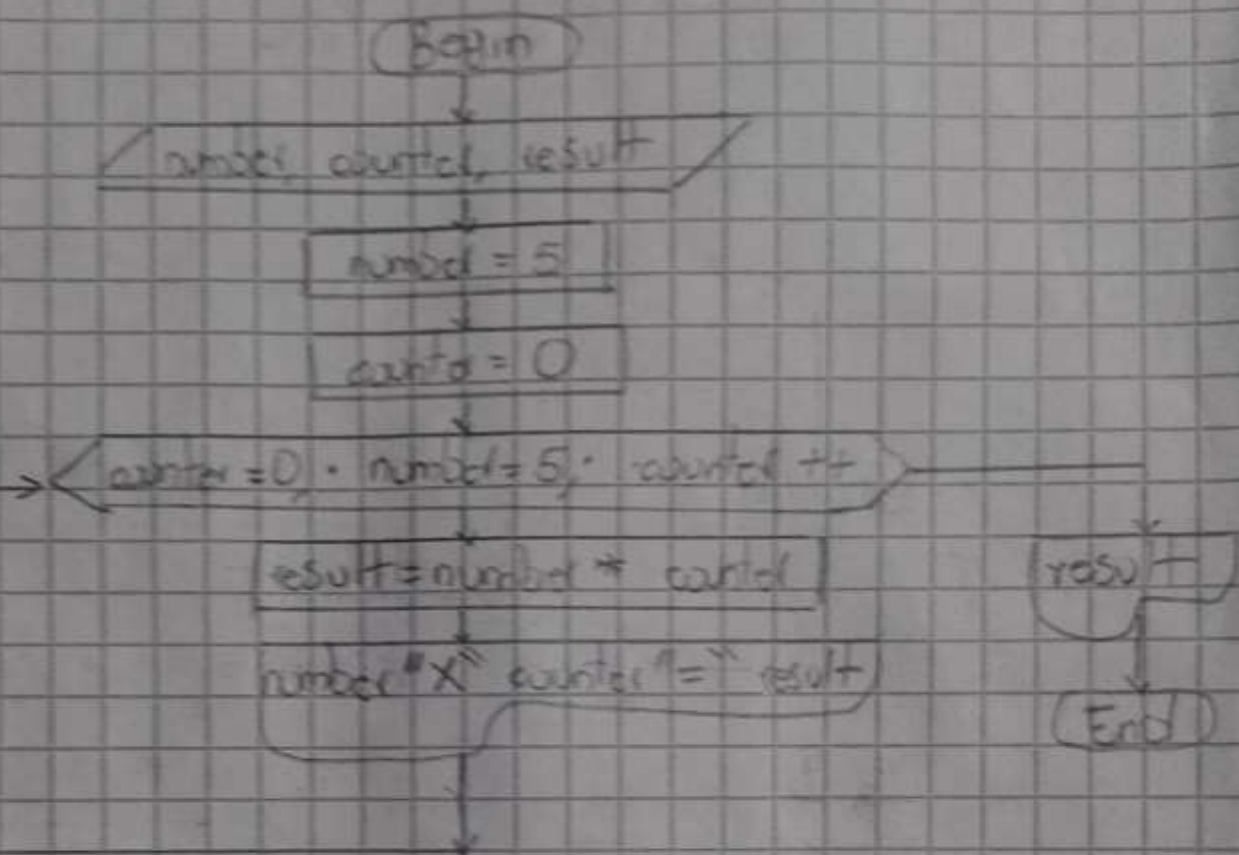 Begin
number, counter, result
number = 5
counter = 0
counter = 0; number = 5; counter ++
result = number * counter
result
number "x" counter "=" result
End